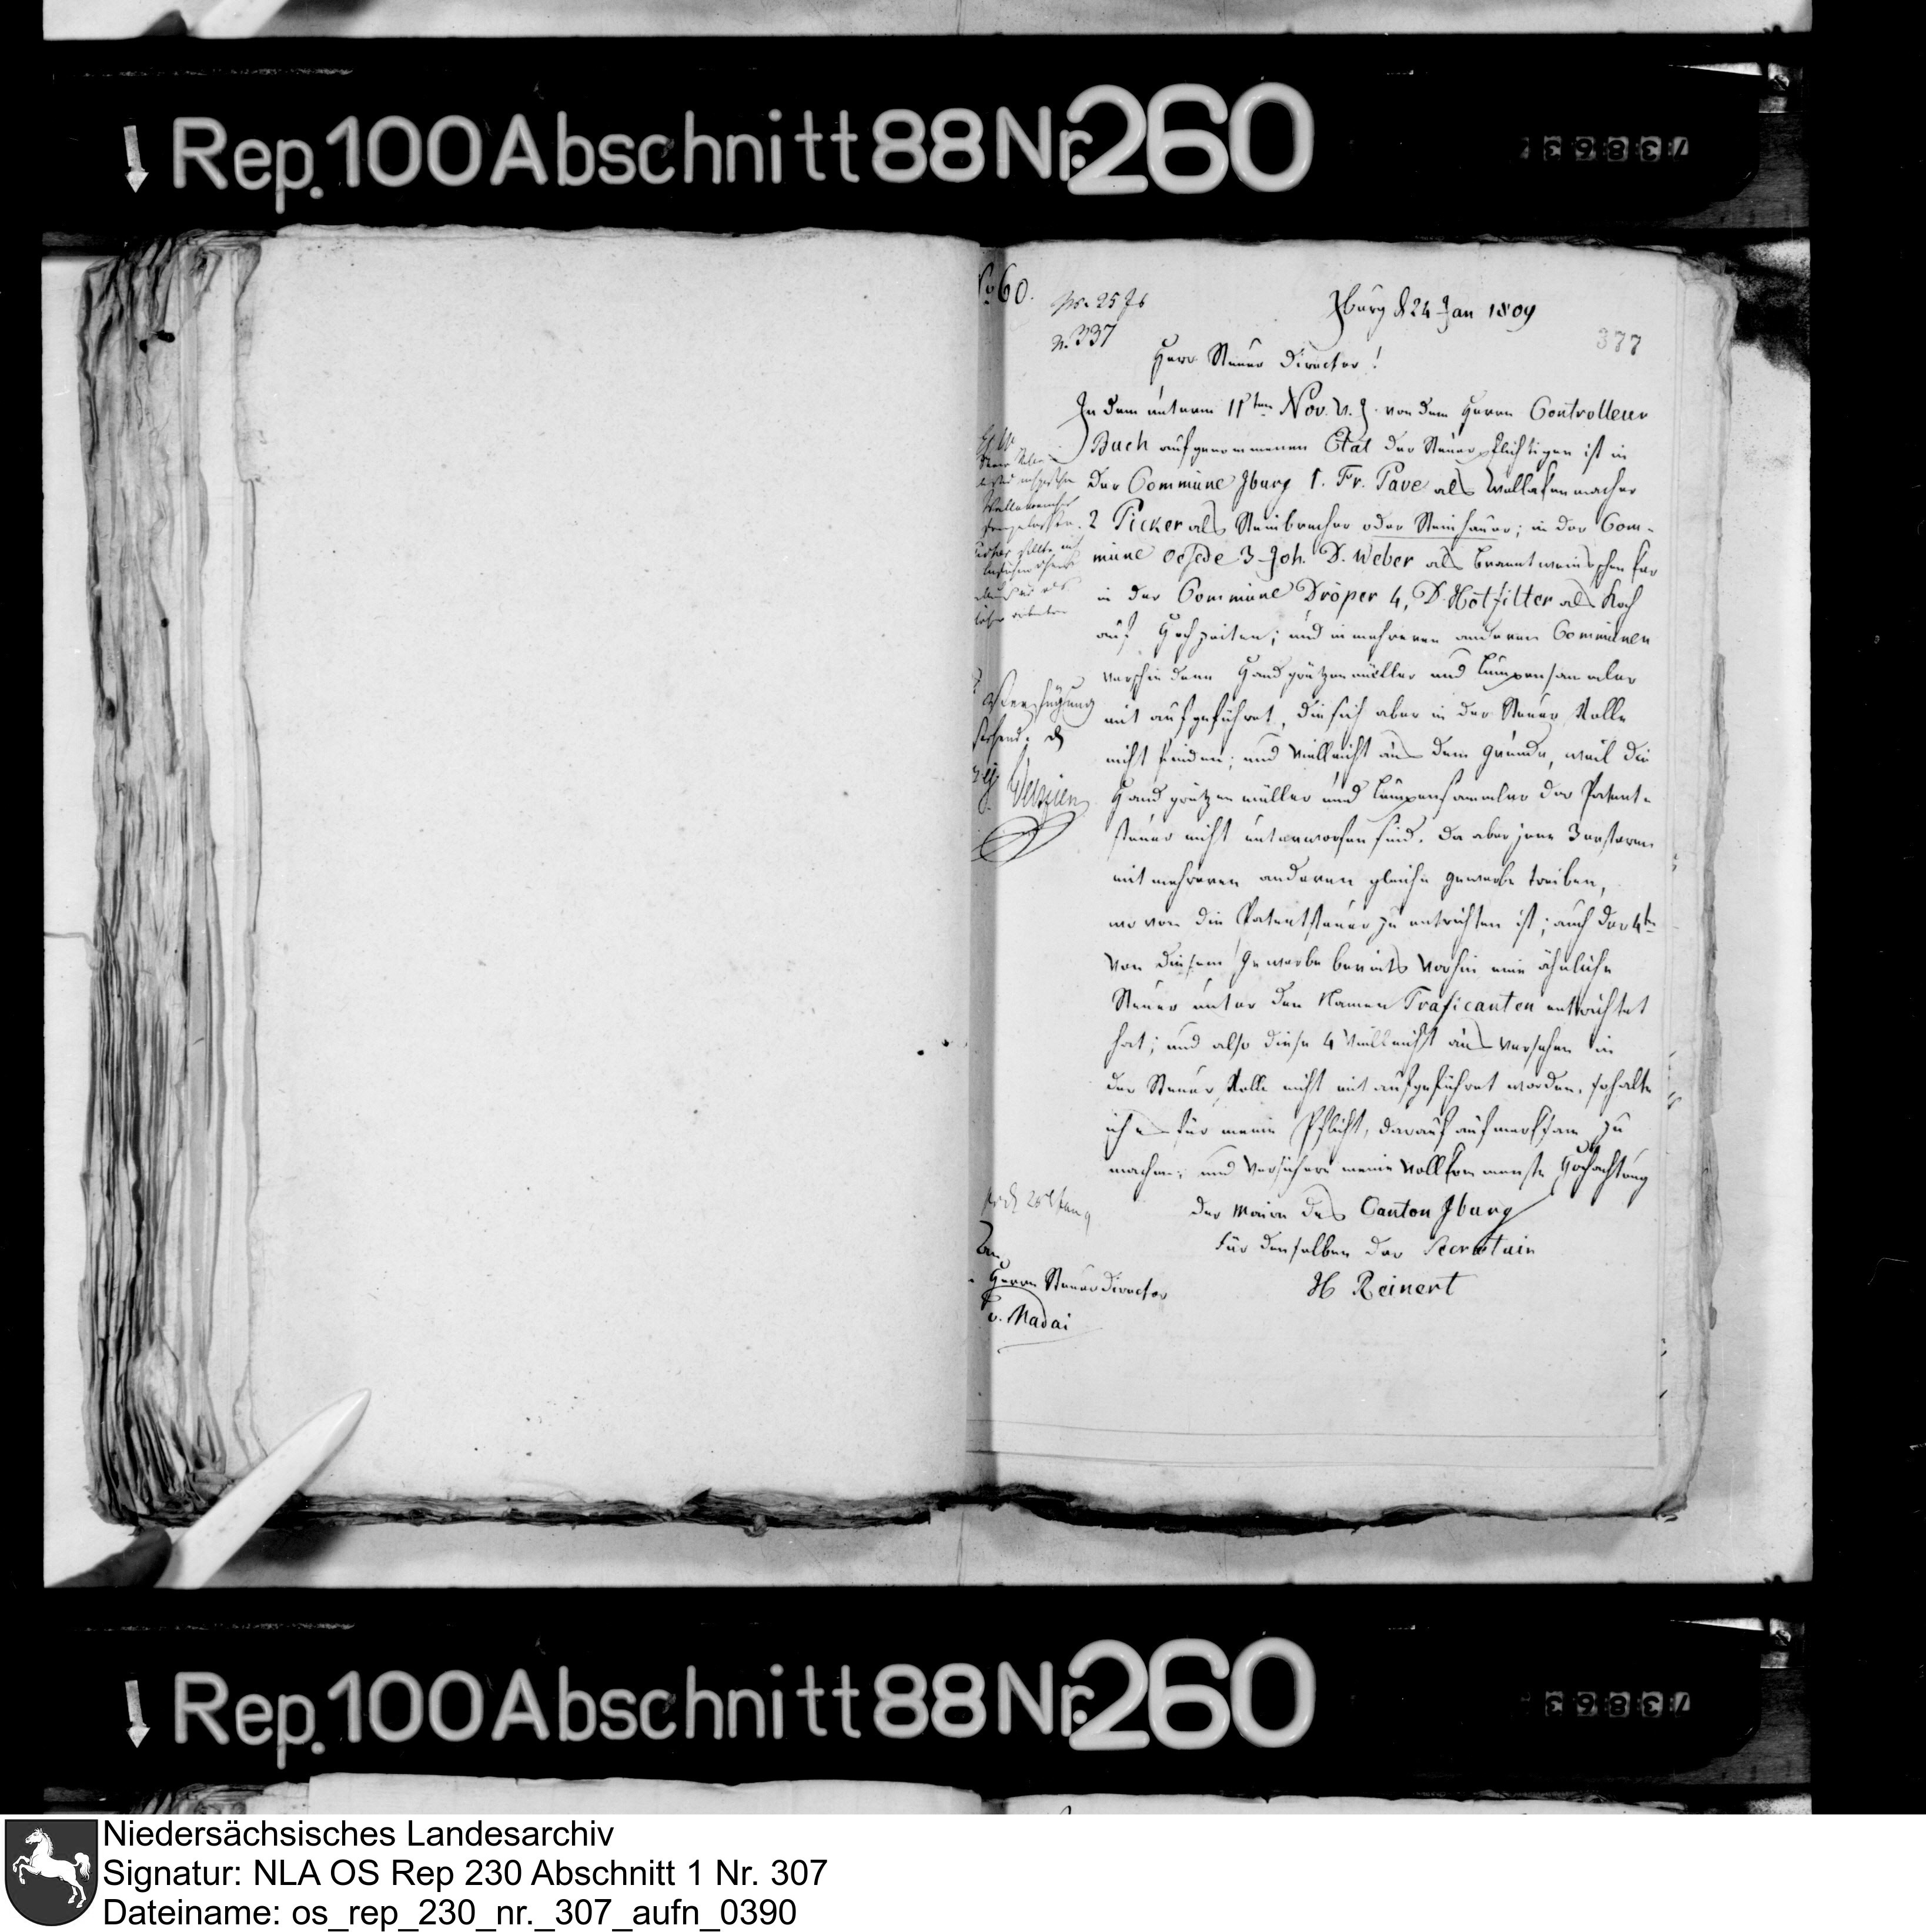 Rep. 100 Abschnitt 88 Nr. 260
No 60.
n. 337
Iburg d 24 Jan 1809
377
Herr Steuer Director!
In dem unterm 11ten Nov. v. J. von dem Herrn Controlleur
Buch aufgenommenen Etat der Steuerpflichtigen ist in
der Commune Iburg 1. Fr. Pave als Wolllakenmacher
2 Picker als Steinbrecher oder Steinhauer; in der Com-
mune Oesede 3 Joh. D. Weber als Branntweinschenker
in der Commune Dröper 4, D. Hötfilter als Koch
auf Hochzeiten; und in mehreren anderen Communen
verschiedene Handgrützemüller und Lumpensammler
mit aufgeführet, die sich aber in der Steuer Rolle
nicht finden; und vielleicht aus dem Grunde, weil die
Handgrützemüller und Lumpensammler der Patent-
steuer nicht unterworfen sind. Da aber jene 3 ersteren
mit mehreren anderen gleiche Gewerbe treiben,
wovon die Patentsteuer zu entrichten ist; auch der 4te
von diesem Gewerbe bereits vorhin eine ähnliche
Steuer unter den Namen Traficanten entrichtet
hat; und also diese 4 vielleicht aus Versehen in
der Steuer Rolle nicht mit aufgeführet worden, so halte
ich es für meine Pflicht, darauf aufmerksam zu
machen; und versichere meine vollkommenste Hochachtung
Der Maire des Canton Iburg
Für denselben der Secretair
H Reinert
Herrn Steuer Director
v. Madai
Rep. 100 Abschnitt 88 Nr. 260
Niedersächsisches Landesarchiv
Signatur: NLA OS Rep 230 Abschnitt 1 Nr. 307
Dateiname: os_rep_230_nr._307_aufn_0390